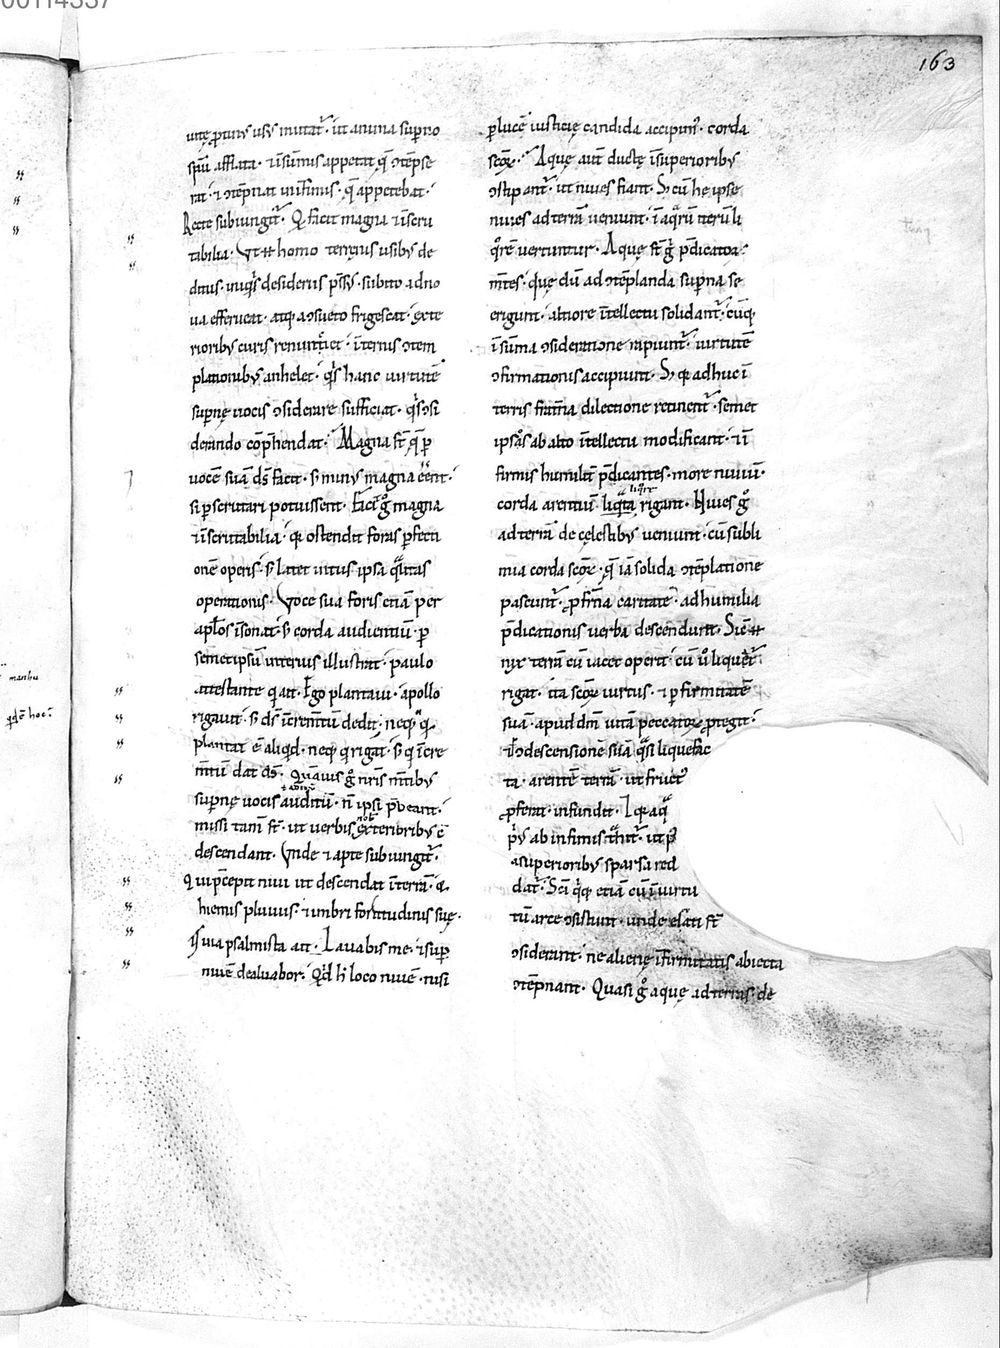 00114337
163
uitę ptinus usus mutat᷑. ut anima supno
spū afflata. ⁊ ī sūmis appetat q̄ ɔtēpse
rat. ⁊ ɔtēpnat in ifimis. q̄ appetebat.
Recte subiungit᷑. Q facit magna ⁊ īscru
tabilia. Vt homo terrenis usibȝ de
ditus. iniqͥs desideriis pssȝ. subito ad no
ua efferueat. atq; a ɔsueto frigescat. exte
rioribȝ curis renuntiet. īternis ɔtem
plationibȝ anhelet. qͥs hanc uirtutē
supnę uocis ɔsiderare sufficiat. qͥs ɔsi
derando cōp̄hendat. Magna st̄ q̄ p
uocē suā ds̄ facit. s; minȝ magna eēnt.
si pscrutari potuissent. Facit gͦ magna
⁊ īscrutabilia. qꝛ ostendit foras pfecti
onē opis. s; latet intus ipsa qͣlitas
operationis. Voce sua foris etiā per
aplōs īsonat. s; corda audientiū. p
semetipsū interius illustrat. paulo
attestante qui ait. Ego plantaui. apollo
rigauit. s; ds̄ īcrem̄tū dedit. neq; qͥ
plantat ē aliqͥd. neq; qͥ rigat. s; qͥ īcre
m̄tū dat ds̄. Quāuis gͦ nr̄is m̄tibȝ
supnę uocis auditū. n̄ ipsi p̄beant.
missi tam̄ st̄. ut uerbis exterioribȝ ē
descendant. Vnde ⁊ apte subiungit᷑.
Qui p̄cepit niui ut descendat ī terrā. ⁊
hiemis pluuiis. ⁊ imbri fortitudinis suę.
is uia psalmista ait. Lauabis me. ⁊ sup
niuē dealuabor. Qd h̄ loco niuē. nisi
plucē iusticię candida accipim᷒. corda
scōꝝ. Aquę aut̄ ductę ī superioribȝ
ɔstip ant᷑. ut niues fiant. S; cū hę ipse
niues ad terrā ueniunt. ī aqͣrū iterū li
qͦrē uertuntur. Aquę st̄ gͦ p̄dicatoꝝ
m̄tes. quę dū ad ɔtēplanda supna se
erigunt. altiore ītellectu solidant᷑. cūq;
ī sūma ɔsideratione rapiunt᷑. uirtutē
ɔfirmationis accipiunt. S; qꝛ adhuc ī
terris frat̄na dilectione retinent᷑. semet
ipsos ab alto ītellectu modificant. ⁊ ī
firmis humilit̄ p̄dicantes. more niuiū.
corda arentiū liq̄ta rigant. Niues gͦ
liqͦre
ad terrā de cęlestibȝ ueniunt. cū subli
mia corda scōꝝ. q̄ iā solida ɔtēplatione
pascunt᷑. p frn̄a caritatē. ad humilia
p̄dicationis uerba descendunt. Sic
nix terrā cū iacet operit. cū ū liquet᷑
rigat. ita scōꝝ uirtus. ⁊ p firmitatē
suā. apud dm̄ uitā peccatoꝝ ptegit.
⁊ p ɔdescensionē suā qͣsi liquefac
ta. arentē terrā. ut fructȝ
pferat. infundit. ⁊ qꝛ aqͣ
p̄ȝ ab infimis t̄hit᷑. ut p
a superioribȝ sparsa red
dat᷑. Scī qͦq; etiā cū ī uirtu
tū arce ɔsistunt. unde elati st̄
ɔsiderant. ne alienę īfirmitatis abiecta
ɔtēpnant. Quasi gͦ aquę ad terras de
manhu
qͥdē hoc.